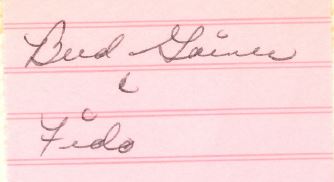 Bud Gaines
&
Fido